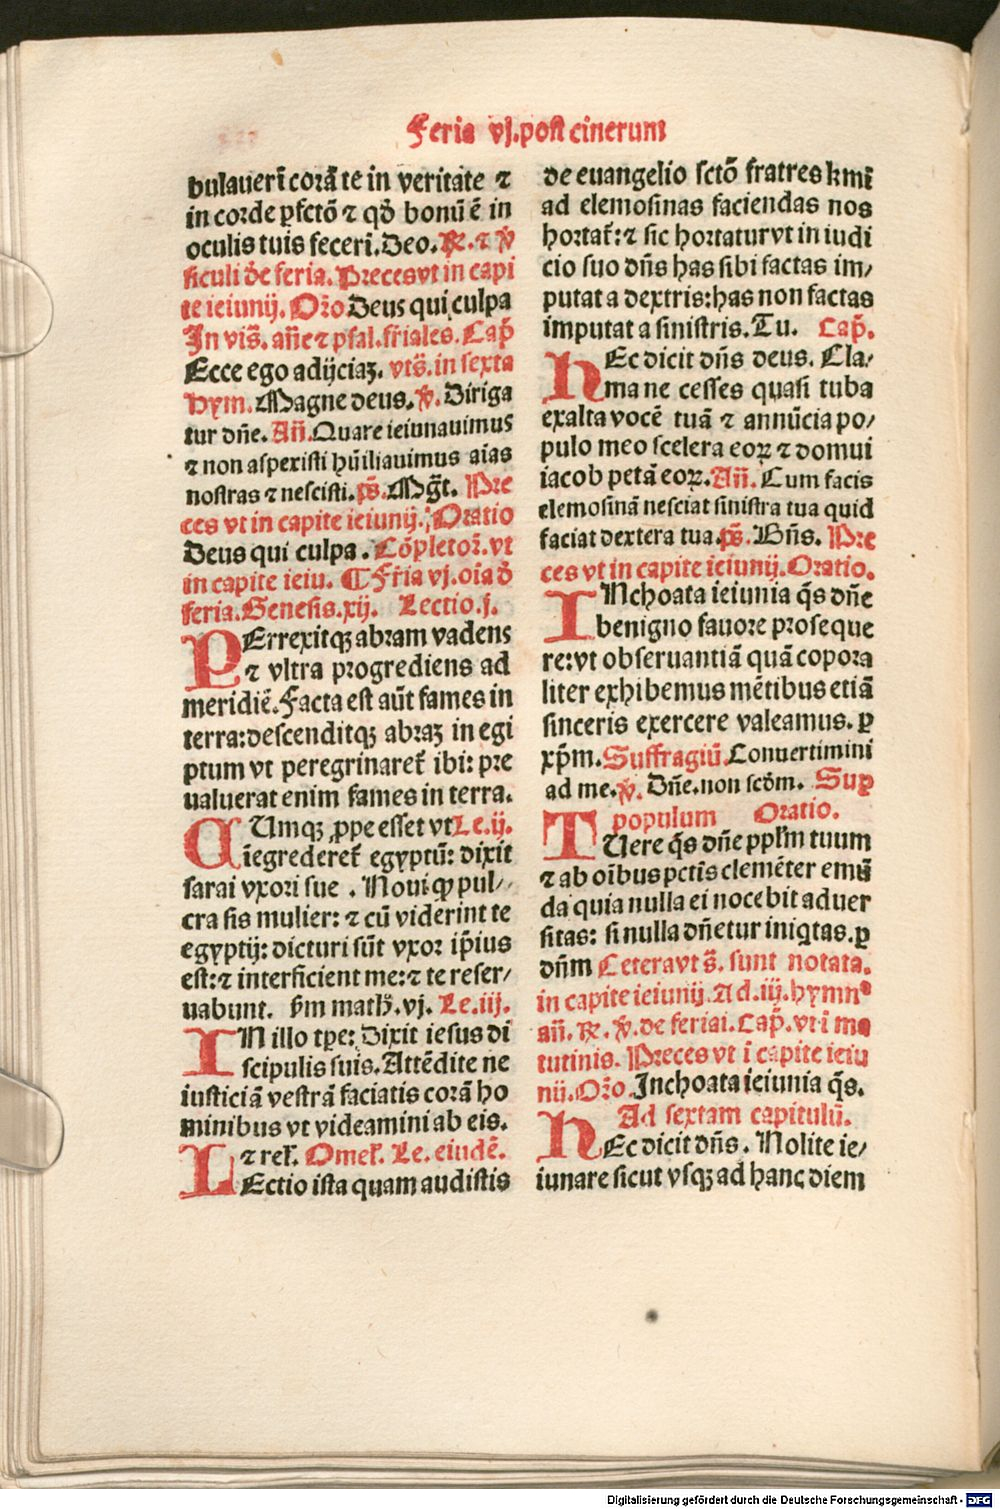 Feria vj. post cinerum
bulauerī corā te in veritate ⁊
in corde ꝑfctō ⁊ qđ bonū ē in
oculis tuis fecerī. Deo. ℞. ⁊ ℣
siculi đe feria. Preces vt in capi
te ieiunij. Oŕo Deus qui culpa
In viš. añe ⁊ psal. fŕiales. Cap̄
Ecce ego adijciaꝫ. vtš. in sexta
hym. Magne deus. ℣. Diriga
tur dñe. Añ. Quare ieiunauimus
⁊ non aspexisti hūiliauimus aīas
nostras ⁊ nescisti. pš. Mḡt. Pre
ces vt in capite ieiunij. Oratio
Deus qui culpa. Cōpletoŕ. vt
in capite ieiu. ¶ Fŕia vj. oīa đ
feria. Genesis. xij. Lectio. j.
PErrexitqꝫ abram vadens
⁊ vltra progrediens ad
meridiē. Facta est aūt fames in
terra: descenditqꝫ abraꝫ in egi
ptum vt peregrinaret̄ ibi: pre
ualuerat enim fames in terra.
CUmqꝫ ꝓpe esset vt Le. ij.
īegrederet̄ egyptū: dixit
sarai vxori sue. Noui ꝙ pul//
cra sis mulier: ⁊ cū viderint te
egyptij: dicturi sūt vxor ip̄ius
est: ⁊ interficient me: ⁊ te reser/
uabunt. ẜm math. vj. Le. iij.
IN illo tꝑe: Dixit iesus di
scipulis suis. Attēdite ne
iusticiā vestrā faciatis corā ho
minibus vt videamini ab eis.
⁊ rel̄. Omel̄. Le. eiudē.
LEctio ista quam audistis
de euangelio sctō fratres kmī
ad elemosinas faciendas nos
hortat̄: ⁊ sic hortatur vt in iudi
cio suo dñs has sibi factas im/
putat a dextris: has non factas
imputat a sinistris. Tu. Cap̄.
HEc dicit dñs deus. Cla/
ma ne cesses quasi tuba
exalta vocē tuā ⁊ annūcia po/
pulo meo scelera eoꝝ ⁊ domui
iacob petā eoꝝ. Añ. Cum facis
elemosinā nesciat sinistra tua quid
faciat dextera tua. pš. Bñs. Pre
ces vt in capite ieiunij. Oratio.
INchoata ieiunia q̄s dñe
benigno fauore proseque
re: vt obseruantiā quā copora
liter exhibemus mētibus etiā
sinceris exercere valeamus. ꝑ
xp̄m. Suffragiū. Conuertimini
ad me. ℣. Dñe. non scđm. Suꝑ
populum Oratio.
TUere q̄s dñe pplm̄ tuum
⁊ ab oībus pctīs clemēter emū
da quia nulla ei nocebit aduer
sitas: si nulla dñetur iniqͥtas. ꝑ
dñm Cetera vt š. sunt notata.
in capite ieiunij. Ad. iij. hymnꝰ
añ. ℞. ℣. de feriai. Cap̄. vt ī ma
tutinis. Preces vt ī capite ieiu
nij. Oŕo. Inchoata ieiunia q̄s.
Ad sextam capitulū.
HEc dicit dñs. Nolite ie/
iunare sicut vsqꝫ ad hanc diem
Digitalisierung gefördert durch die Deutsche Forschungsgemeinschaft - DFG